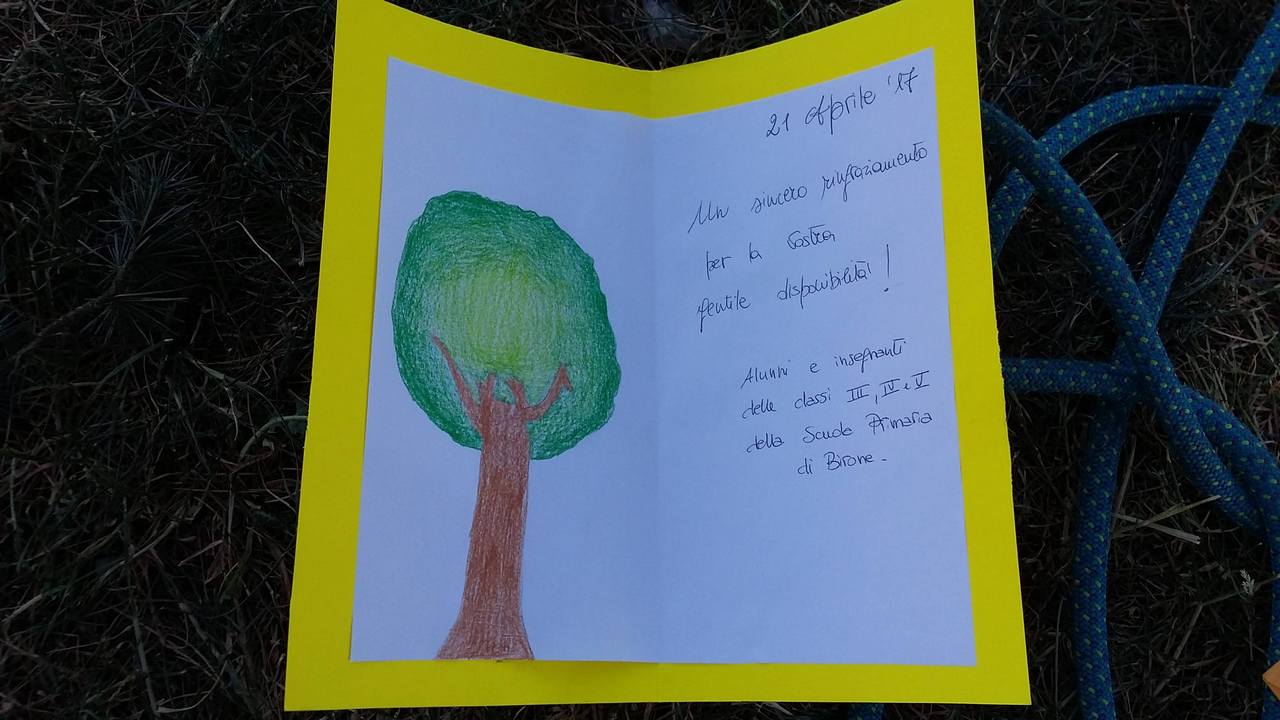 21 Aprile '17
Un sincero ringraziamento
per la Vostra
gentile disponibilità!
Alunni e insegnanti
delle classi III, IV e V
della Scuola Primaria
di Birone.